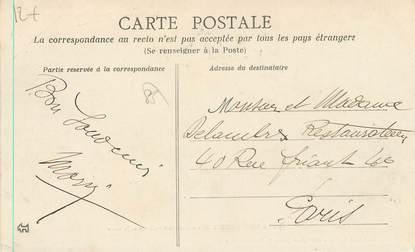 12 f
CARTE POSTALE
La correspondance au recto n'est pas acceptée par tous les pays étrangers
(Se renseigner à la Poste)
Partie réservée à la correspondance
Adresse du destinataire
Bon Souvenir
Monsieur et Madame
Delambre Restaurateur
40 Rue Friant 40
Paris